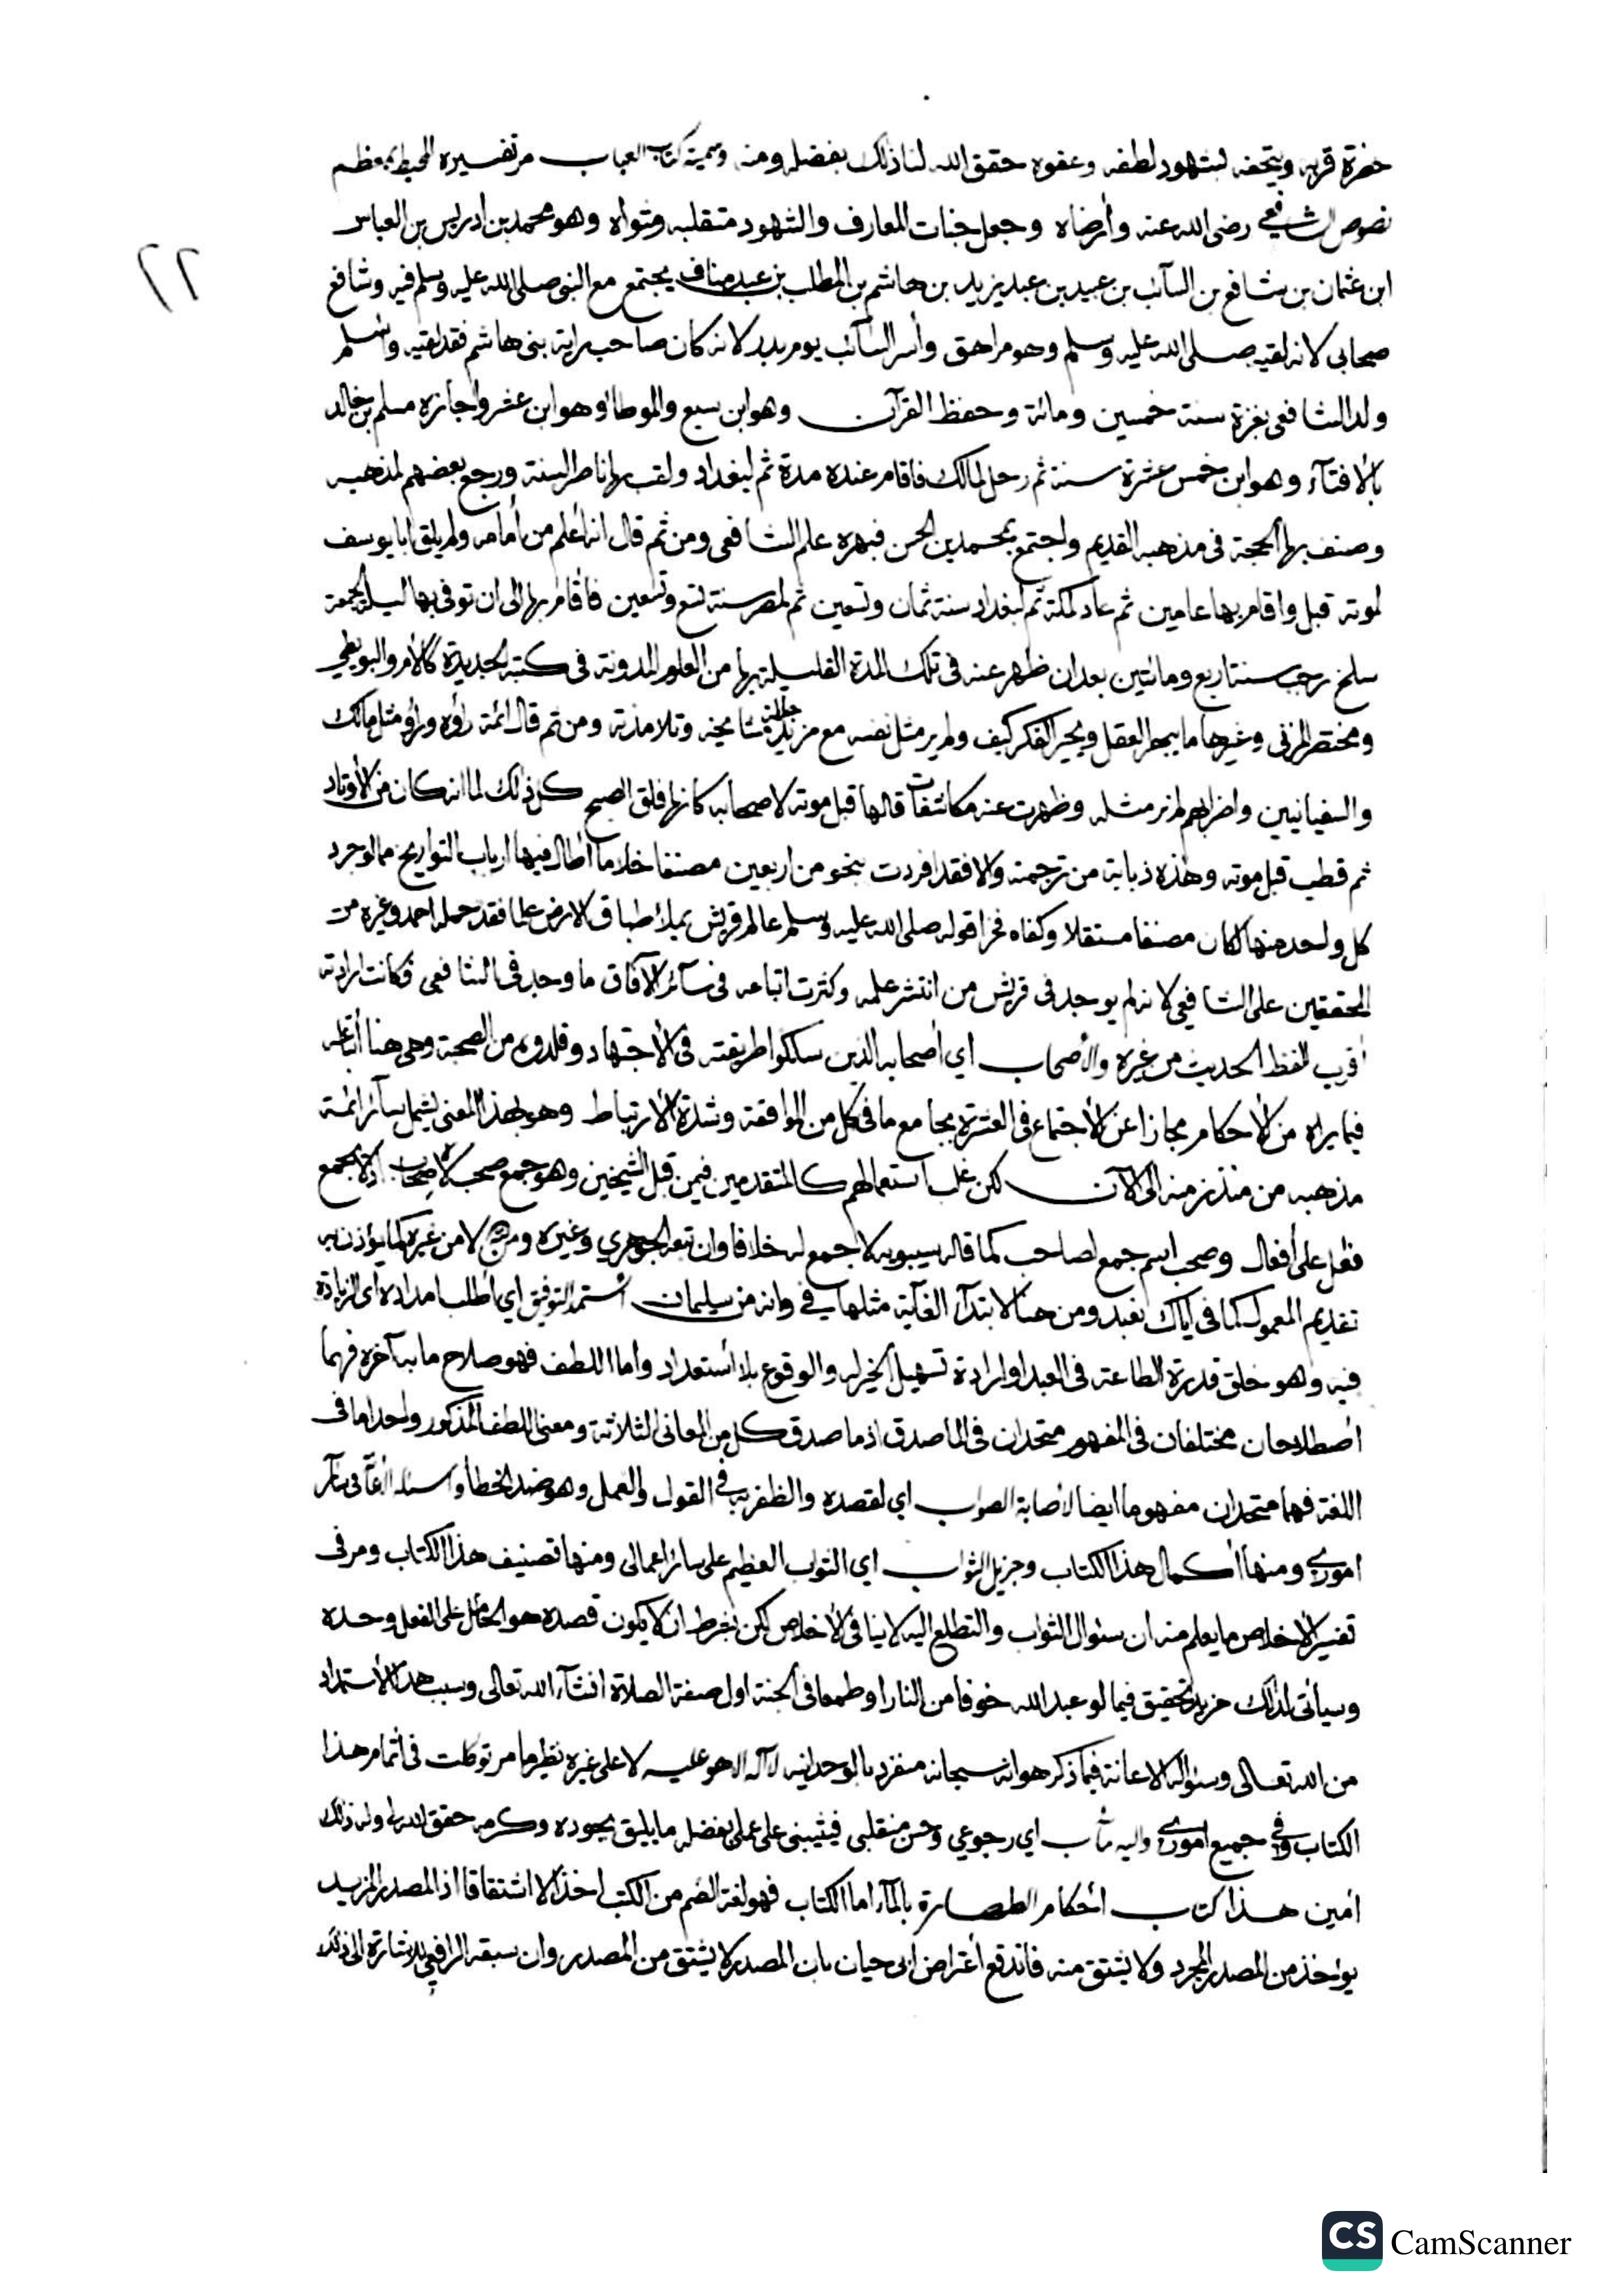 حضرة قربه ويتحفه بشهود لطفه وعفوه حقق الله لنا ذلك بفضله ومنه وسميته كتاب العباب مر تفسيره المحيط بمعظم
نصوص الشافعي رضى الله عنه وأرضاه وجعل جنات المعارف والشهود متقلبه ومثواه وهو محمد بن ادريس بن العباس
ابن عثمان بن شافع بن السآئب بن عبيد بن عبد يزيد بن هاشم بن المطلب بن عبد مناف يجتمع مع النبى صلى الله عليه وسلم فيه وشافع
صحابى لانه لقيه صلى الله عليه وسلم وهو مراهق وأسر السآئب يوم بدر لانه كان صاحب راية بنى هاشم فقد لقيه وأسلم
ولد الشافعى بغزة سنة خمسين ومائة وحفظ القرآن وهو ابن سبع والموطأ وهو ابن عشر واجازه مسلم بن خالد
بالافتآء وهو ابن خمس عشرة سنة ثم رحل لمالك فاقام عنده مدة ثم لبغداد ولقب بها ناصر السنة ورجع بعضهم لمذهبه
وصنف بها الحجة فى مذهبه القديم واجتمع بمحمد بن الحسن فبهره علم الشافعى ومن ثم قال انه أعلم من أمامه ولم يلق ابا يوسف
لموته قبل واقام بها عامين ثم عاد لمكة ثم لبغداد سنة ثمان وتسعين ثم لمصر سنة تسع وتسعين فأقام بها الى ان توفى بها ليلة الجمعة
سلخ رجب سنة اربع ومائتين بعد ان ظهر عنه فى تلك المدة القليلة بها من العلوم المدونة فى كتبه الجديدة كالأم والبويطي
ومختصر المزنى وغيرها ما يبهر العقل ويحير الفكر كيف ولم ير مثل نفسه مع مزيد جلالة مشايخه وتلامذته ومن ثم قال ائمة رأوه ورأو مثل مالك
والسفيانيين واضرابهم لم نر مثله وظهرت عنه مكاشفات قالها قبل موته لاصحابه كانها فلق الصبح كل ذلك لما انه كان من الأوتاد
ثم قطب قبل موته وهذه ذبابة من ترجمته والا فقد افردت بنحو من اربعين مصنفا خلا ما أطال فيها ارباب التواريخ مما لو جرد
كل واحد منها لكان مصنفا مستقلا وكفاه فخرا قوله صلى الله عليه وسلم عالم قريش يملأ طباق الارض علما فقد حمله احمد وغيره من
المحققين على الشافعي لانه لم يوجد فى قريش من انتشر علمه وكثرت اتباعه فى سآئر الآفاق ما وجد فى الشافعى فكانت ارادته
أقرب للفظ الحديث من غيره والأصحاب اي أصحابه الذين سلكوا طريقته فى الأجتهاد وقلدوه من الصحبة وهى هنا أتباعه
فيما يراه من الأحكام مجازا عن الأجتماع فى العشرة بجامع ما فى كل من الموافقة وشدة الأرتباط وهو بهذا المعنى يشمل سآئر ائمة
مذهبه من منذ زمنه الى الآن لكن غلب استعمالهم كالمتقدمين فيمن قبل الشيخين وهو جمع صحب لا صاحب اذ لا يجمع
فاعل على أفعال وصحب اسم جمع لصاحب كما قاله سيبويه لا جمع له خلافا وان تبعه الجوهري وغيره ومن لا من غيره كما يؤذن به
تقديم المعمول كما فى اياك نعبد ومن هنا لابتدآء الغآية مثلها في وانه من سليمان أستمد التوفيق اي أطلب امداده اى الزيادة
فيه وهو خلق قدرة الطاعة فى العبد او ارادة تسهيل الخير له والوقوع بلا أستعداد واما اللطف فهو صلاح ما به آخره فهما
أصطلاحان مختلفان فى المفهوم متحدان فى الماصدق اذ ما صدق كل من المعانى الثلاثة ومعنى اللطف المذكور واحد اما فى
اللغة فهما متحدان مفهوما ايضا لأصابة الصواب اي لقصده والظفر به في القول والعمل وهو ضد الخطأ
أموري ومنها أكمال هذا الكتاب وجزيل الثواب اي الثواب العظيم على سائر اعمالى ومنها تصنيف هذا الكتاب ومر فى
تفسير الأخلاص ما يعلم منه ان سئوال الثواب والتطلع اليه لا ينافى الأخلاص لكن بشرط ان لا يكون قصده هو الحامل على الفعل وحده
وسيأتى لذلك مزيد تحقيق فيما لو عبد الله خوفا من النار او طمعا فى الجنة اول صفة الصلاة انشآء الله تعالى وسبب هذا الأستمداد
من الله تعالى وسئواله الاعانة فيما ذكر هو انه سبحانه منفرد بالوحدانيه لآ اله الا هو عليه لا على غيره نظير ما مر توكلت فى أتمام هذا
الكتاب وفي جميع أموري واليه مأب اي رجوعي وحسن منقلبى فيثيبنى على عملى بفضله ما يليق بجوده وكرمه حقق الله له ولنا ذلك
أمين هذا كتاب أحكام الطهارة بالمآء اما الكتاب فهو لغة الضم من الكتب اخذا لا اشتقاقا اذ المصدر المزيد
يوءخذ من المصدر المجرد ولا يشتق منه فاندفع أعتراض ابى حيان بان المصدر لا يشتق من المصدر وان سبقه الرافعي للاشارة الى ذلك
٢٢
CS CamScanner